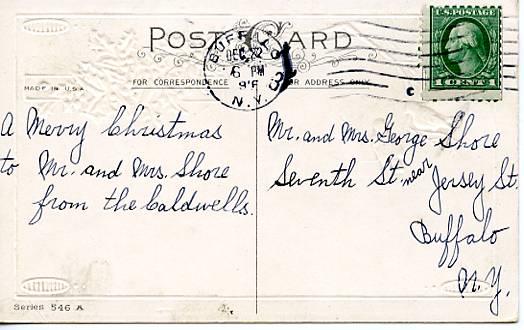 POST CARD
MADE IN U.S.A.
FOR CORRESPONDENCE
FOR ADDRESS ONLY
BUFFALO
DEC 22
6 PM
N.Y.
3
U.S. POSTAGE
1 CENT 1
A Merry Christmas
to Mr. and Mrs. Shore
from the Caldwells.
Mr. and Mrs. George Shore
Seventh St. near Jersey St.
Buffalo
N.Y.
Series 546 A